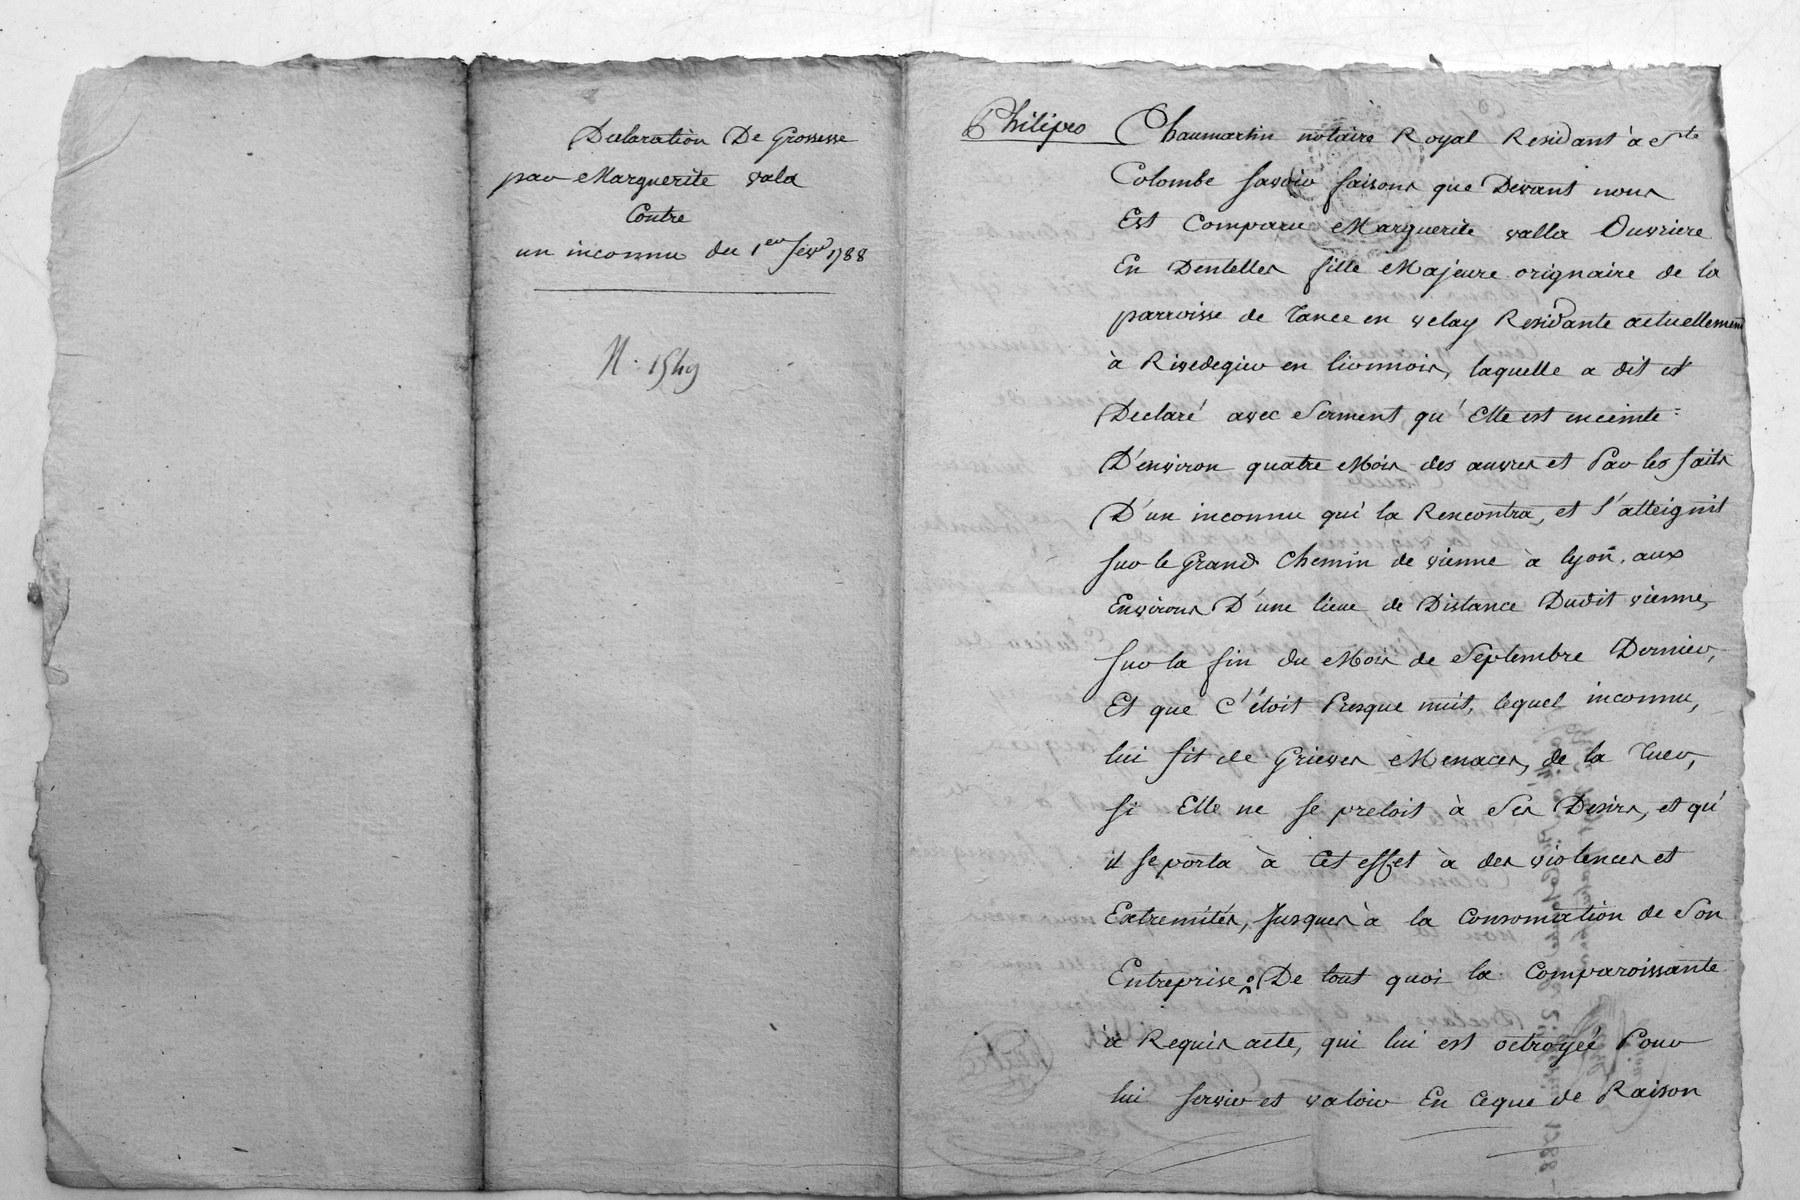 Declaration De Grossesse
par Marguerite vala
Contre
un inconnu du 1er fevr 1788
N. 1549
Philipes Chaumartin notaire Royal Residant à Ste
Colombe savoir faisons que Devant nous
Est Comparu Marguerite valla Ouvriere
En Dentelles fille Majeure orignaire de la
parroisse de Tance en velay Residante actuellement
à Rivedegier en lionnois, laquelle a dit et
Declaré avec Serment, qu'Elle est enceinte
D'environ quatre Mois des œuvres et Par les faits
D'un inconnu qui la Rencontra, et l'atteignit
sur le Grand Chemin de vienne à lyon, aux
Environs D'une lieue de Distance Dudit vienne,
sur la fin du Mois de Septembre Dernier,
Et que c'étoit Presque nuit, lequel inconnu,
lui fit de Grieves Menaces, de la Tuer,
si Elle ne se pretoit à Ses Desirs, et qu'
il se porta à Cet effet à des violences et
Extremités, Jusques à la Consomation de Son
Entreprise. De tout quoi la Comparoissante
à Requis acte, qui lui est octroyéé Pour
lui servir et valoir En ceque de Raison